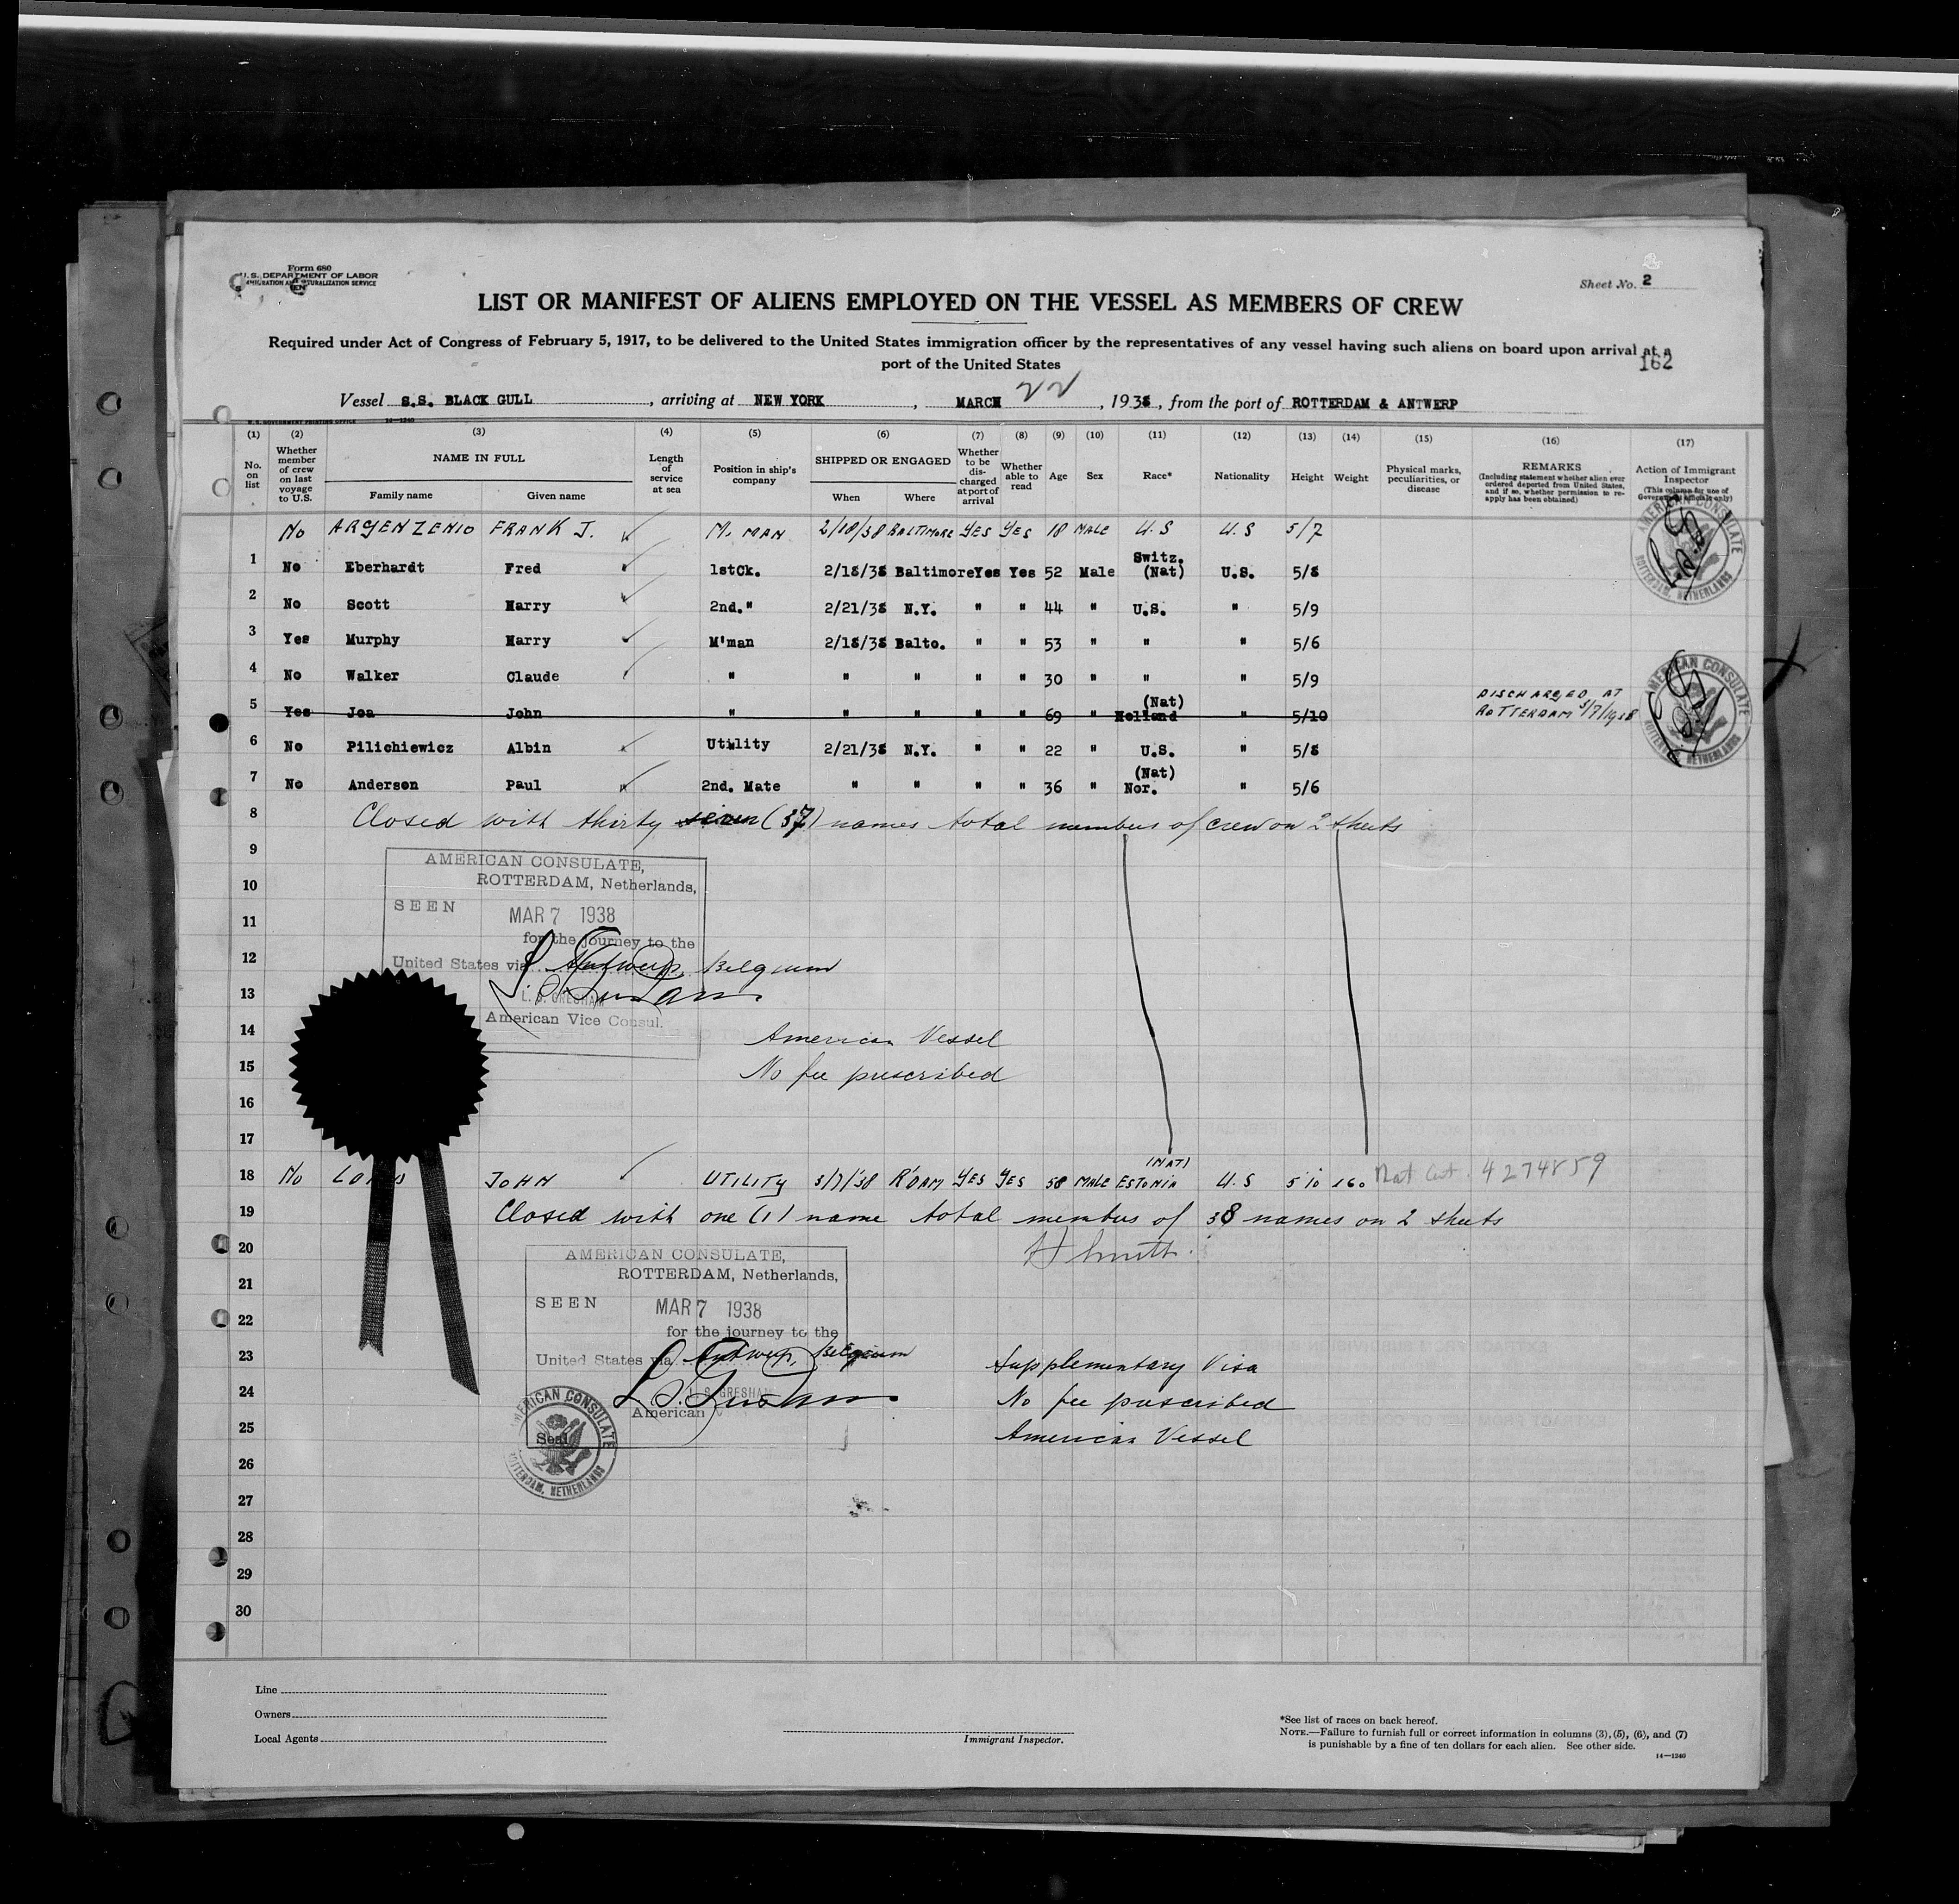 Form 680
U.S. DEPARTMENT OF LABOR
IMMIGRATION AND NATURALIZATION SERVICE
Sheet No. 2
LIST OR MANIFEST OF ALIENS EMPLOYED ON THE VESSEL AS MEMBERS OF CREW
Required under Act of Congress of February 5, 1917, to be delivered to the United States immigration officer by the representatives of any vessel having such aliens on board upon arrival at a
port of the United States
162
Vessel S.S. BLACK GULL, arriving at NEW YORK, MARCH 22, 1938, from the port of ROTTERDAM & ANTWERP
U.S. GOVERNMENT PRINTING OFFICE 14—1240
(1) (2) (3) (4) (5) (6) (7) (8) (9) (10) (11) (12) (13) (14) (15) (16) (17)
No. on list
Whether member of crew on last voyage to U.S.
NAME IN FULL
Family name Given name
Length of service at sea
Position in ship's company
SHIPPED OR ENGAGED
When Where
Whether to be discharged at port of arrival
Whether able to read
Age Sex Race* Nationality Height Weight
Physical marks, peculiarities, or disease
REMARKS
(Including statement whether alien ever ordered deported from United States, and if so, whether permission to reapply has been obtained)
Action of Immigrant Inspector
(This column for use of Government officials only)
No ARGENZENIO FRANK J. M. MAN 2/18/38 BALTIMORE YES YES 18 MALE U.S U.S 5/7
1 No Eberhardt Fred 1stCk. 2/18/38 Baltimore Yes Yes 52 Male Switz. (Nat) U.S. 5/8
2 No Scott Harry 2nd. " 2/21/38 N.Y. " " 44 " U.S. " 5/9
3 Yes Murphy Harry M'man 2/18/38 Balto. " " 53 " " " 5/6
4 No Walker Claude " " " " " 30 " " " 5/9
5 Yes Joa John " " " " " 69 " (Nat) Holland " 5/10 DISCHARGED AT ROTTERDAM 3/7/1938
6 No Pilichiewicz Albin Utility 2/21/38 N.Y. " " 22 " U.S. " 5/8
7 No Anderson Paul 2nd. Mate " " " " 36 " (Nat) Nor. " 5/6
8 Closed with thirty seven (37) names total members of crew on 2 sheets
9
AMERICAN CONSULATE,
10 ROTTERDAM, Netherlands,
SEEN
11 MAR 7 1938
for the journey to the
12 United States via Antwerp, Belgium
13 L. S. GRESHAM
American Vice Consul.
14 American Vessel
15 No fee prescribed
16
17
18 No JOHN UTILITY 3/7/38 R'DAM YES YES 58 MALE (NAT) ESTONIA U.S 5 10 160 Nat Cert. 4274859
19 Closed with one (1) name total members of 38 names on 2 sheets
20
AMERICAN CONSULATE,
ROTTERDAM, Netherlands,
21
SEEN MAR 7 1938
22
for the journey to the
23 United States via Antwerp, Belgium
Supplementary Visa
24 L. S. GRESHAM
No fee prescribed
American V
25 Seal
American Vessel
AMERICAN CONSULATE
ROTTERDAM, NETHERLANDS
26
27
28
29
30
AMERICAN CONSULATE
ROTTERDAM, NETHERLANDS
AMERICAN CONSULATE
ROTTERDAM, NETHERLANDS
Line
Owners
Local Agents
Immigrant Inspector.
*See list of races on back hereof.
NOTE.—Failure to furnish full or correct information in columns (3), (5), (6), and (7)
is punishable by a fine of ten dollars for each alien. See other side.
14—1240